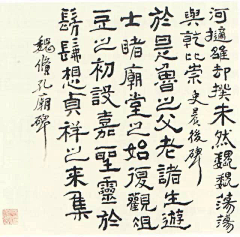 河摛雒却揆未然魏魏蕩蕩
與乾比崇 史晨後碑
於是魯之父老諸生遊
士睹廟堂之始復觀俎
豆之初設嘉聖靈於
髣髴想貞祥之來集
魏脩孔廟碑